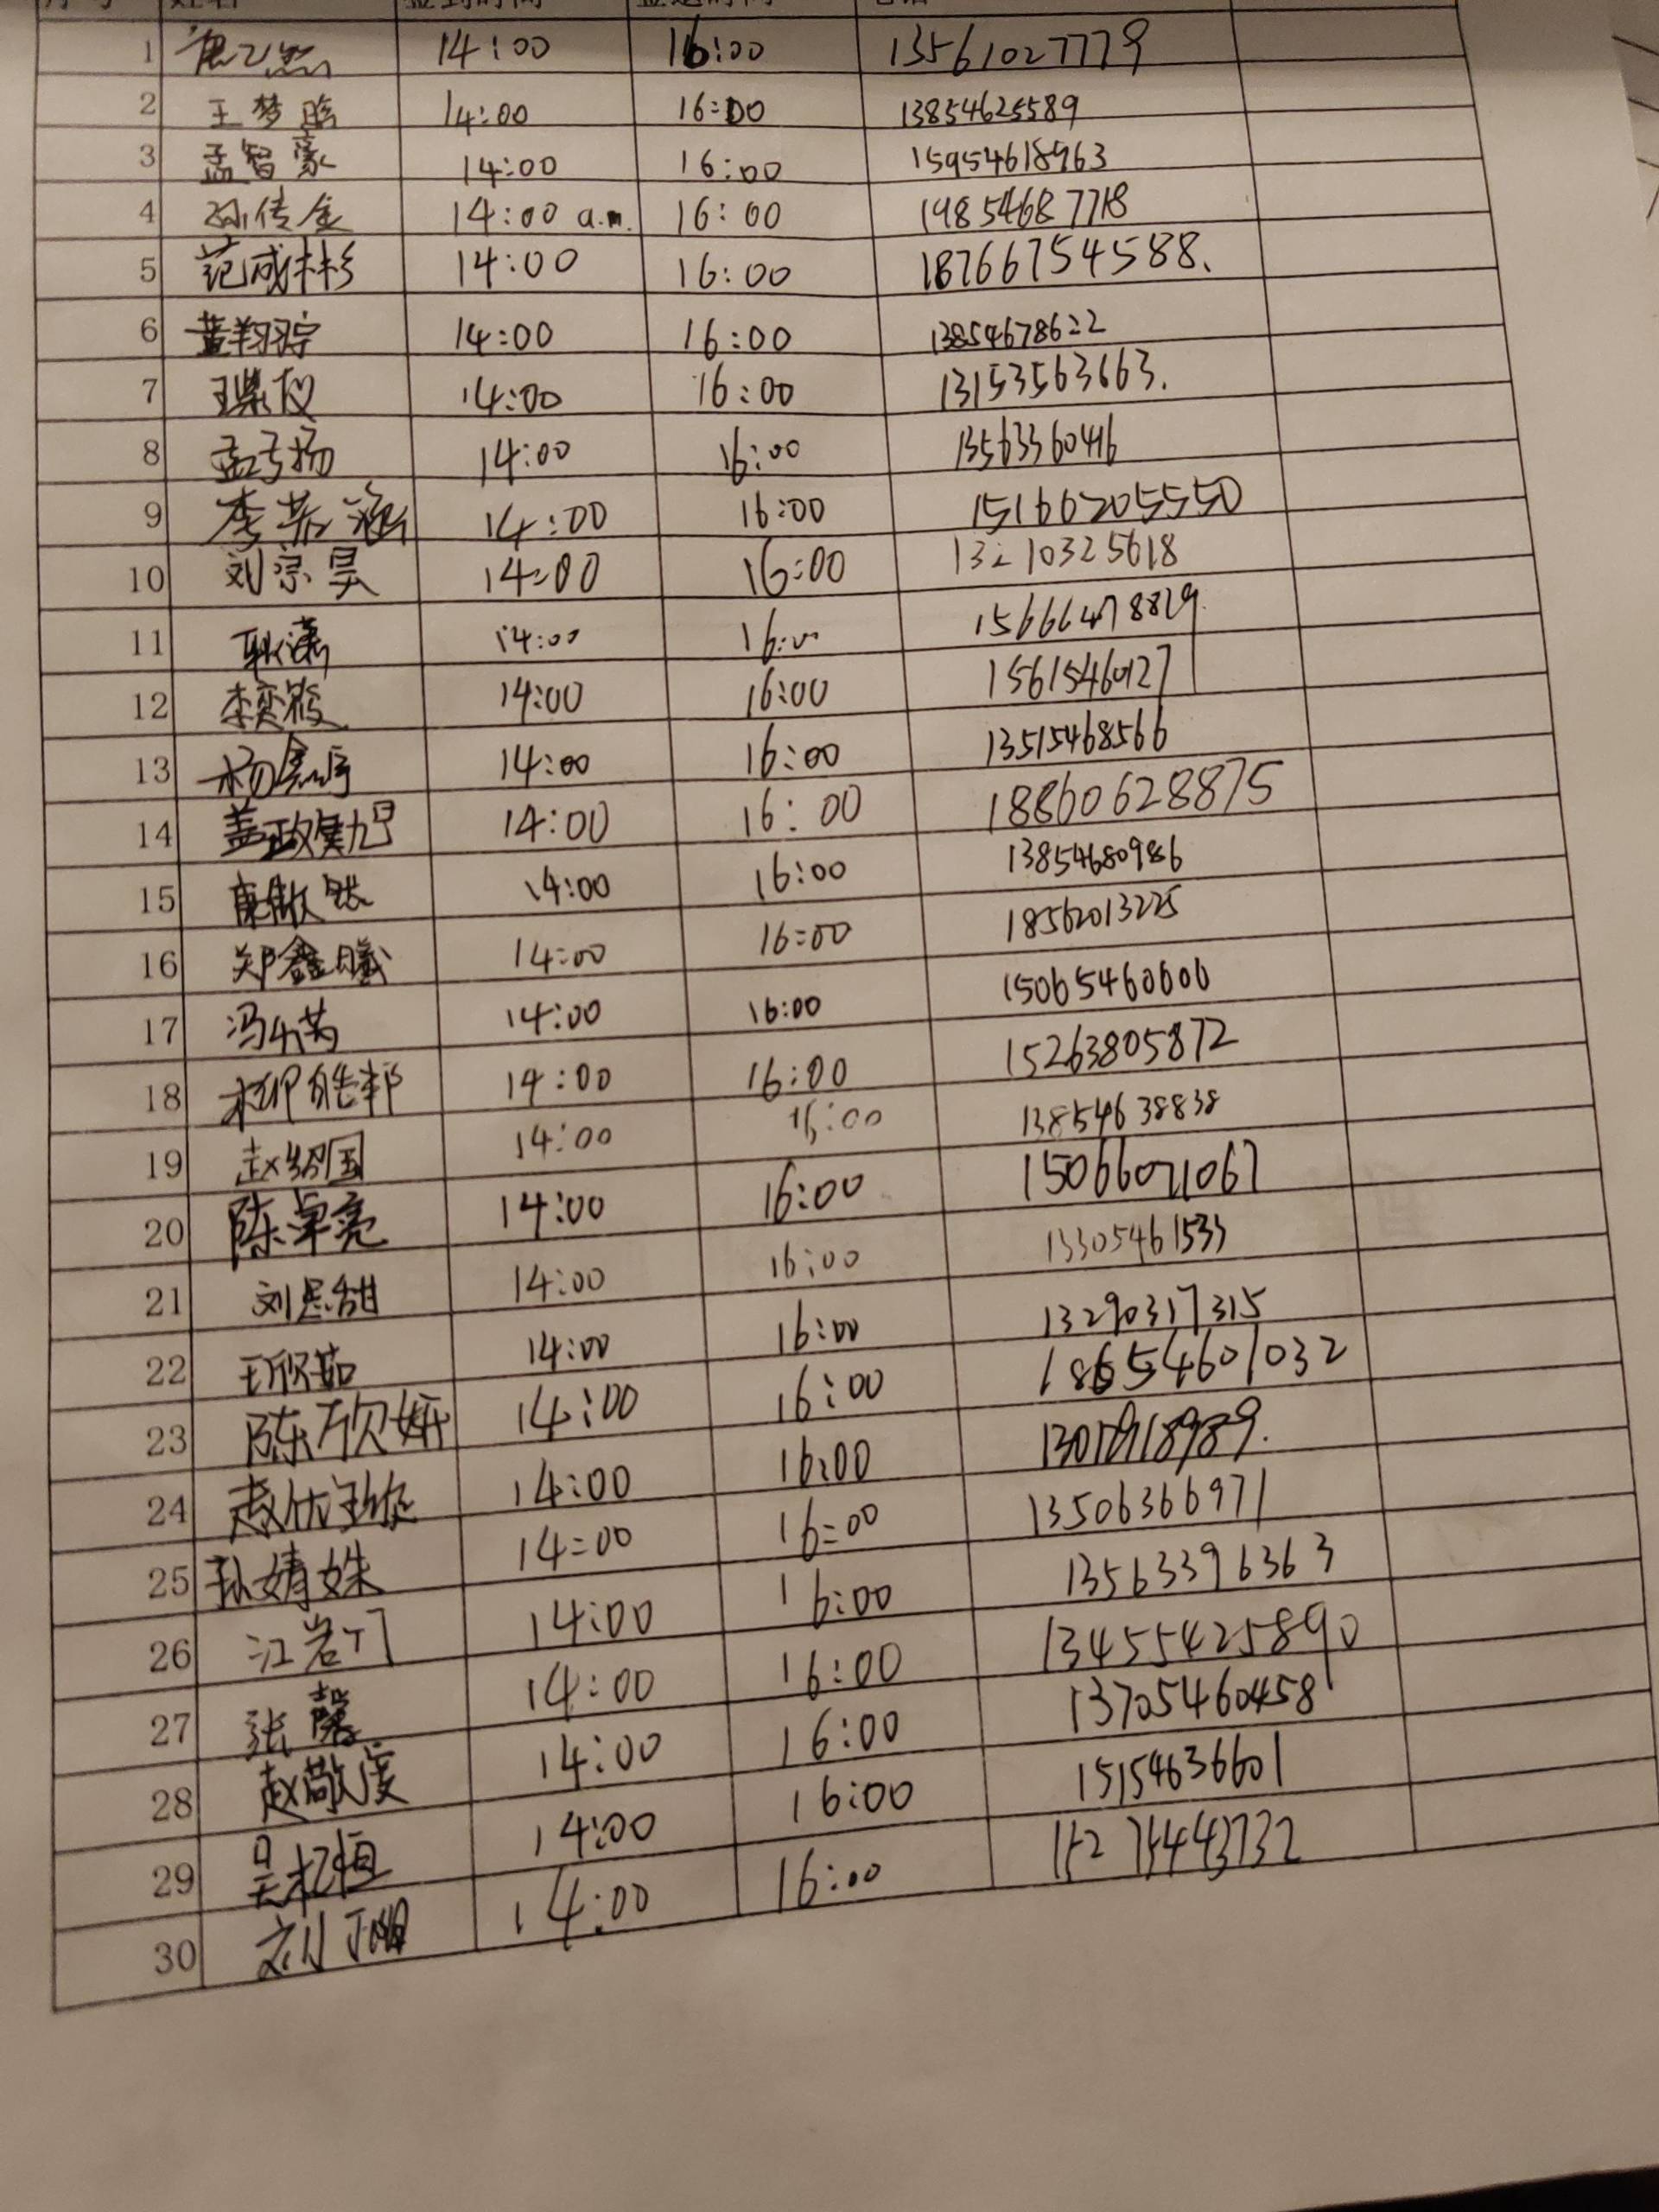 1 14:00 16:00 13561027779
2 王梦晗 14:00 16:00 13854625589
3 孟智豪 14:00 16:00 15954618963
4 孙传金 14:00 a.m. 16:00 19854687718
5 范成彬 14:00 16:00 18766754588.
6 14:00 16:00 13854678622
7 14:00 16:00 13153563663.
8 孟子扬 14:00 16:00 13563360416
9 李若涵 14:00 16:00 15166205550
10 刘宗昊 14:00 16:00 13210325618
11 耿潇 14:00 16:00 15666478829
12 李奕筱 14:00 16:00 15615460127
13 杨鑫宇 14:00 16:00 13515468566
14 盖政旭 14:00 16:00 18860628875
15 14:00 16:00 13854680986
16 郑鑫曦 14:00 16:00 18562013225
17 冯乐芮 14:00 16:00 15065460606
18 柳皓邦 14:00 16:00 15263805872
19 赵绍国 14:00 16:00 13854638838
20 陈卓亮 14:00 16:00 15066071067
21 刘思甜 14:00 16:00 13305461533
22 王欣茹 14:00 16:00 13290317315
23 陈欣妍 14:00 16:00 18654601032
24 14:00 16:00
25 孙婧姝 14:00 16:00 13506366971
26 江岩汀 14:00 16:00 13563396363
27 张馨 14:00 16:00 13455425890
28 赵敬虔 14:00 16:00 13705460458
29 吴松恒 14:00 16:00 15154636601
30 14:00 16:00